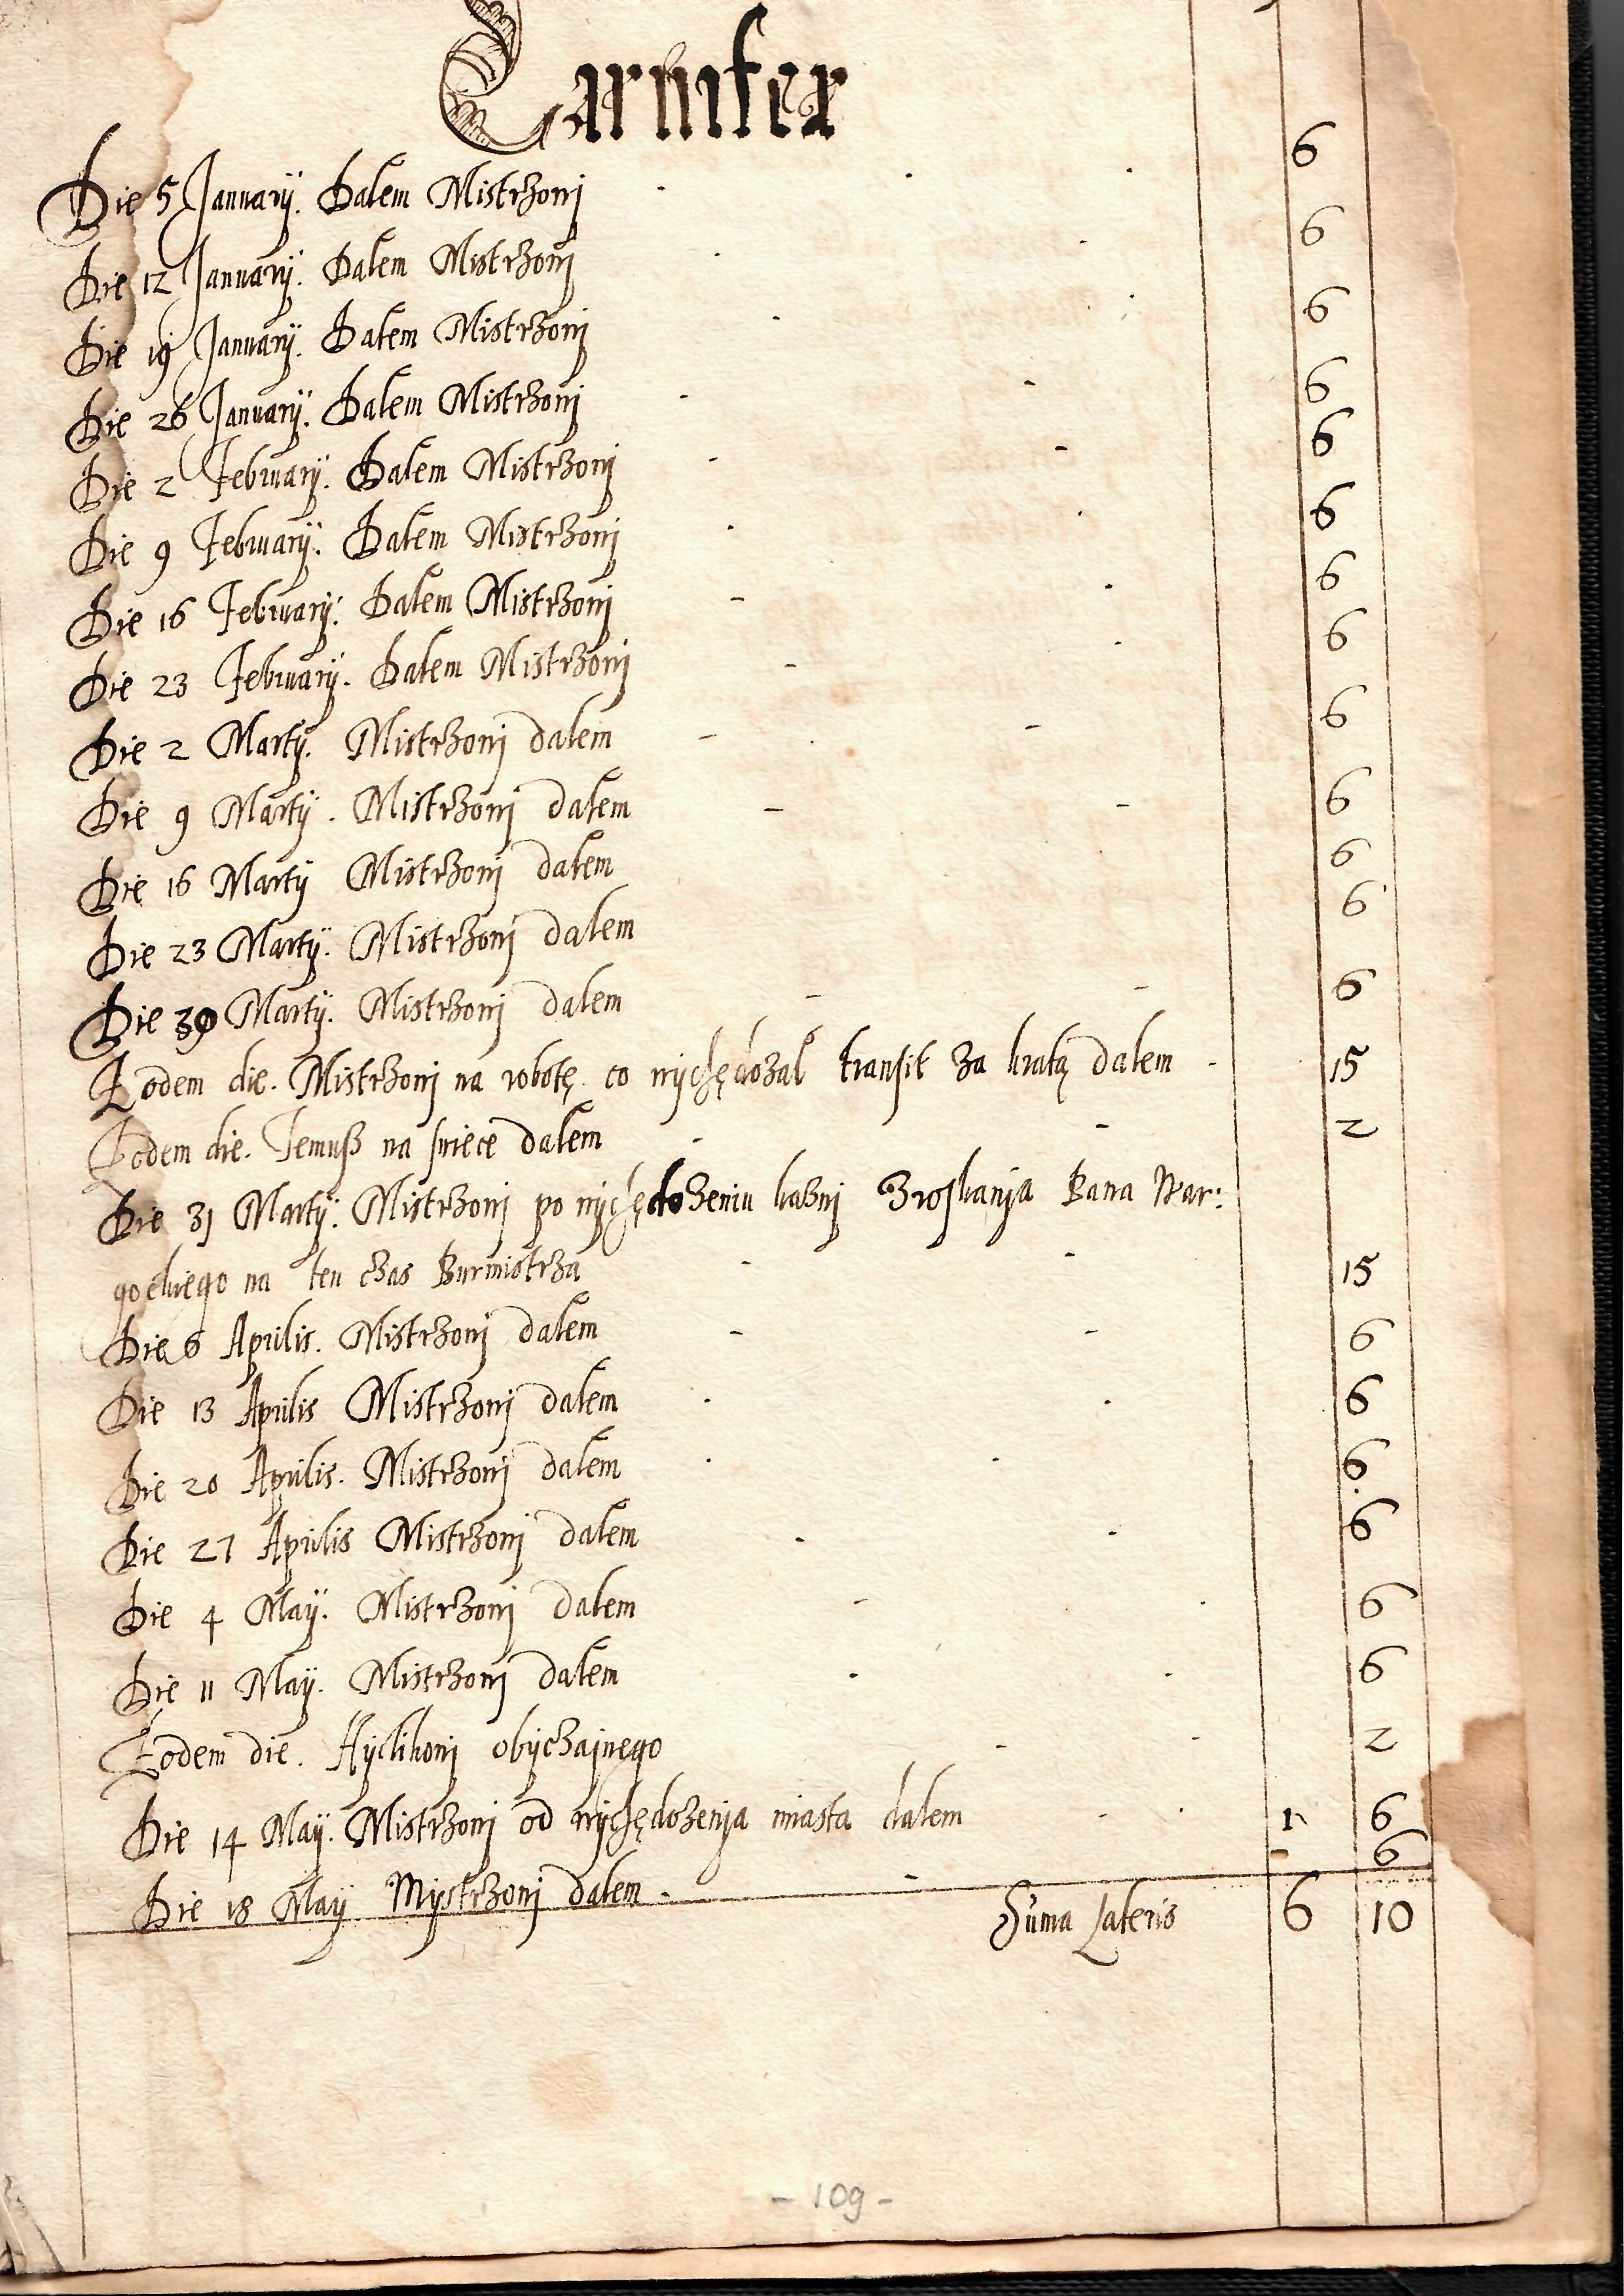 Carnifex
Die 5 Januarÿ. Dałem Mistrzowj - - - 6
Die 12 Januarÿ. Dałem Mistrzowj - - 6
Die 19 Januarÿ. Dałem Mistrzowj - - 6
Die 26 Januarÿ. Dałem Mistrzowj - - 6
Die 2 Februarÿ. Dałem Mistrzowj - - 6
Die 9 Februarÿ. Dałem Mistrzowj - - 6
Die 16 Februarÿ. Dałem Mistrzowj - - 6
Die 23 Februarÿ. Dałem Mistrzowj - - 6
Die 2 Martÿ. Mistrzowj dałem - - 6
Die 9 Martÿ. Mistrzowj dałem - - 6
Die 16 Martÿ Mistrzowj dałem 6
Die 23 Martÿ. Mistrzowj dałem 6
Die 30 Martÿ. Mistrzowj dałem - - 6
Eodem die. Mistrzowj na robotę co wÿchędożał transit za kratą dałem - 15
Eodem die. Temusz na swiece dałem - - 2
Die 31 Martÿ. Mistrzowj po wÿchędożeniu kaznj Zroskanja Pana War:
gockiego na ten czas Burmistrza - - 15
Die 6 Aprilis. Mistrzowj dałem - - 6
Die 13 Aprilis Mistrzowj dałem - - 6
Die 20 Aprilis. Mistrzowj dałem - - 6
Die 27 Aprilis Mistrzowj dałem - - 6
Die 4 Maÿ. Mistrzowj dałem - - 6
Die 11 Maÿ. Mistrzowj dałem - - 6
Eodem die. Hÿclikowj obÿczajnego - - 2
Die 14 Maÿ. Mistrzowj od wÿchędożenja miasta dałem - - 1 6
Die 18 Maÿ Mÿstrzowj dałem - - - 6
Suma Lateris 6 10
- 109 -